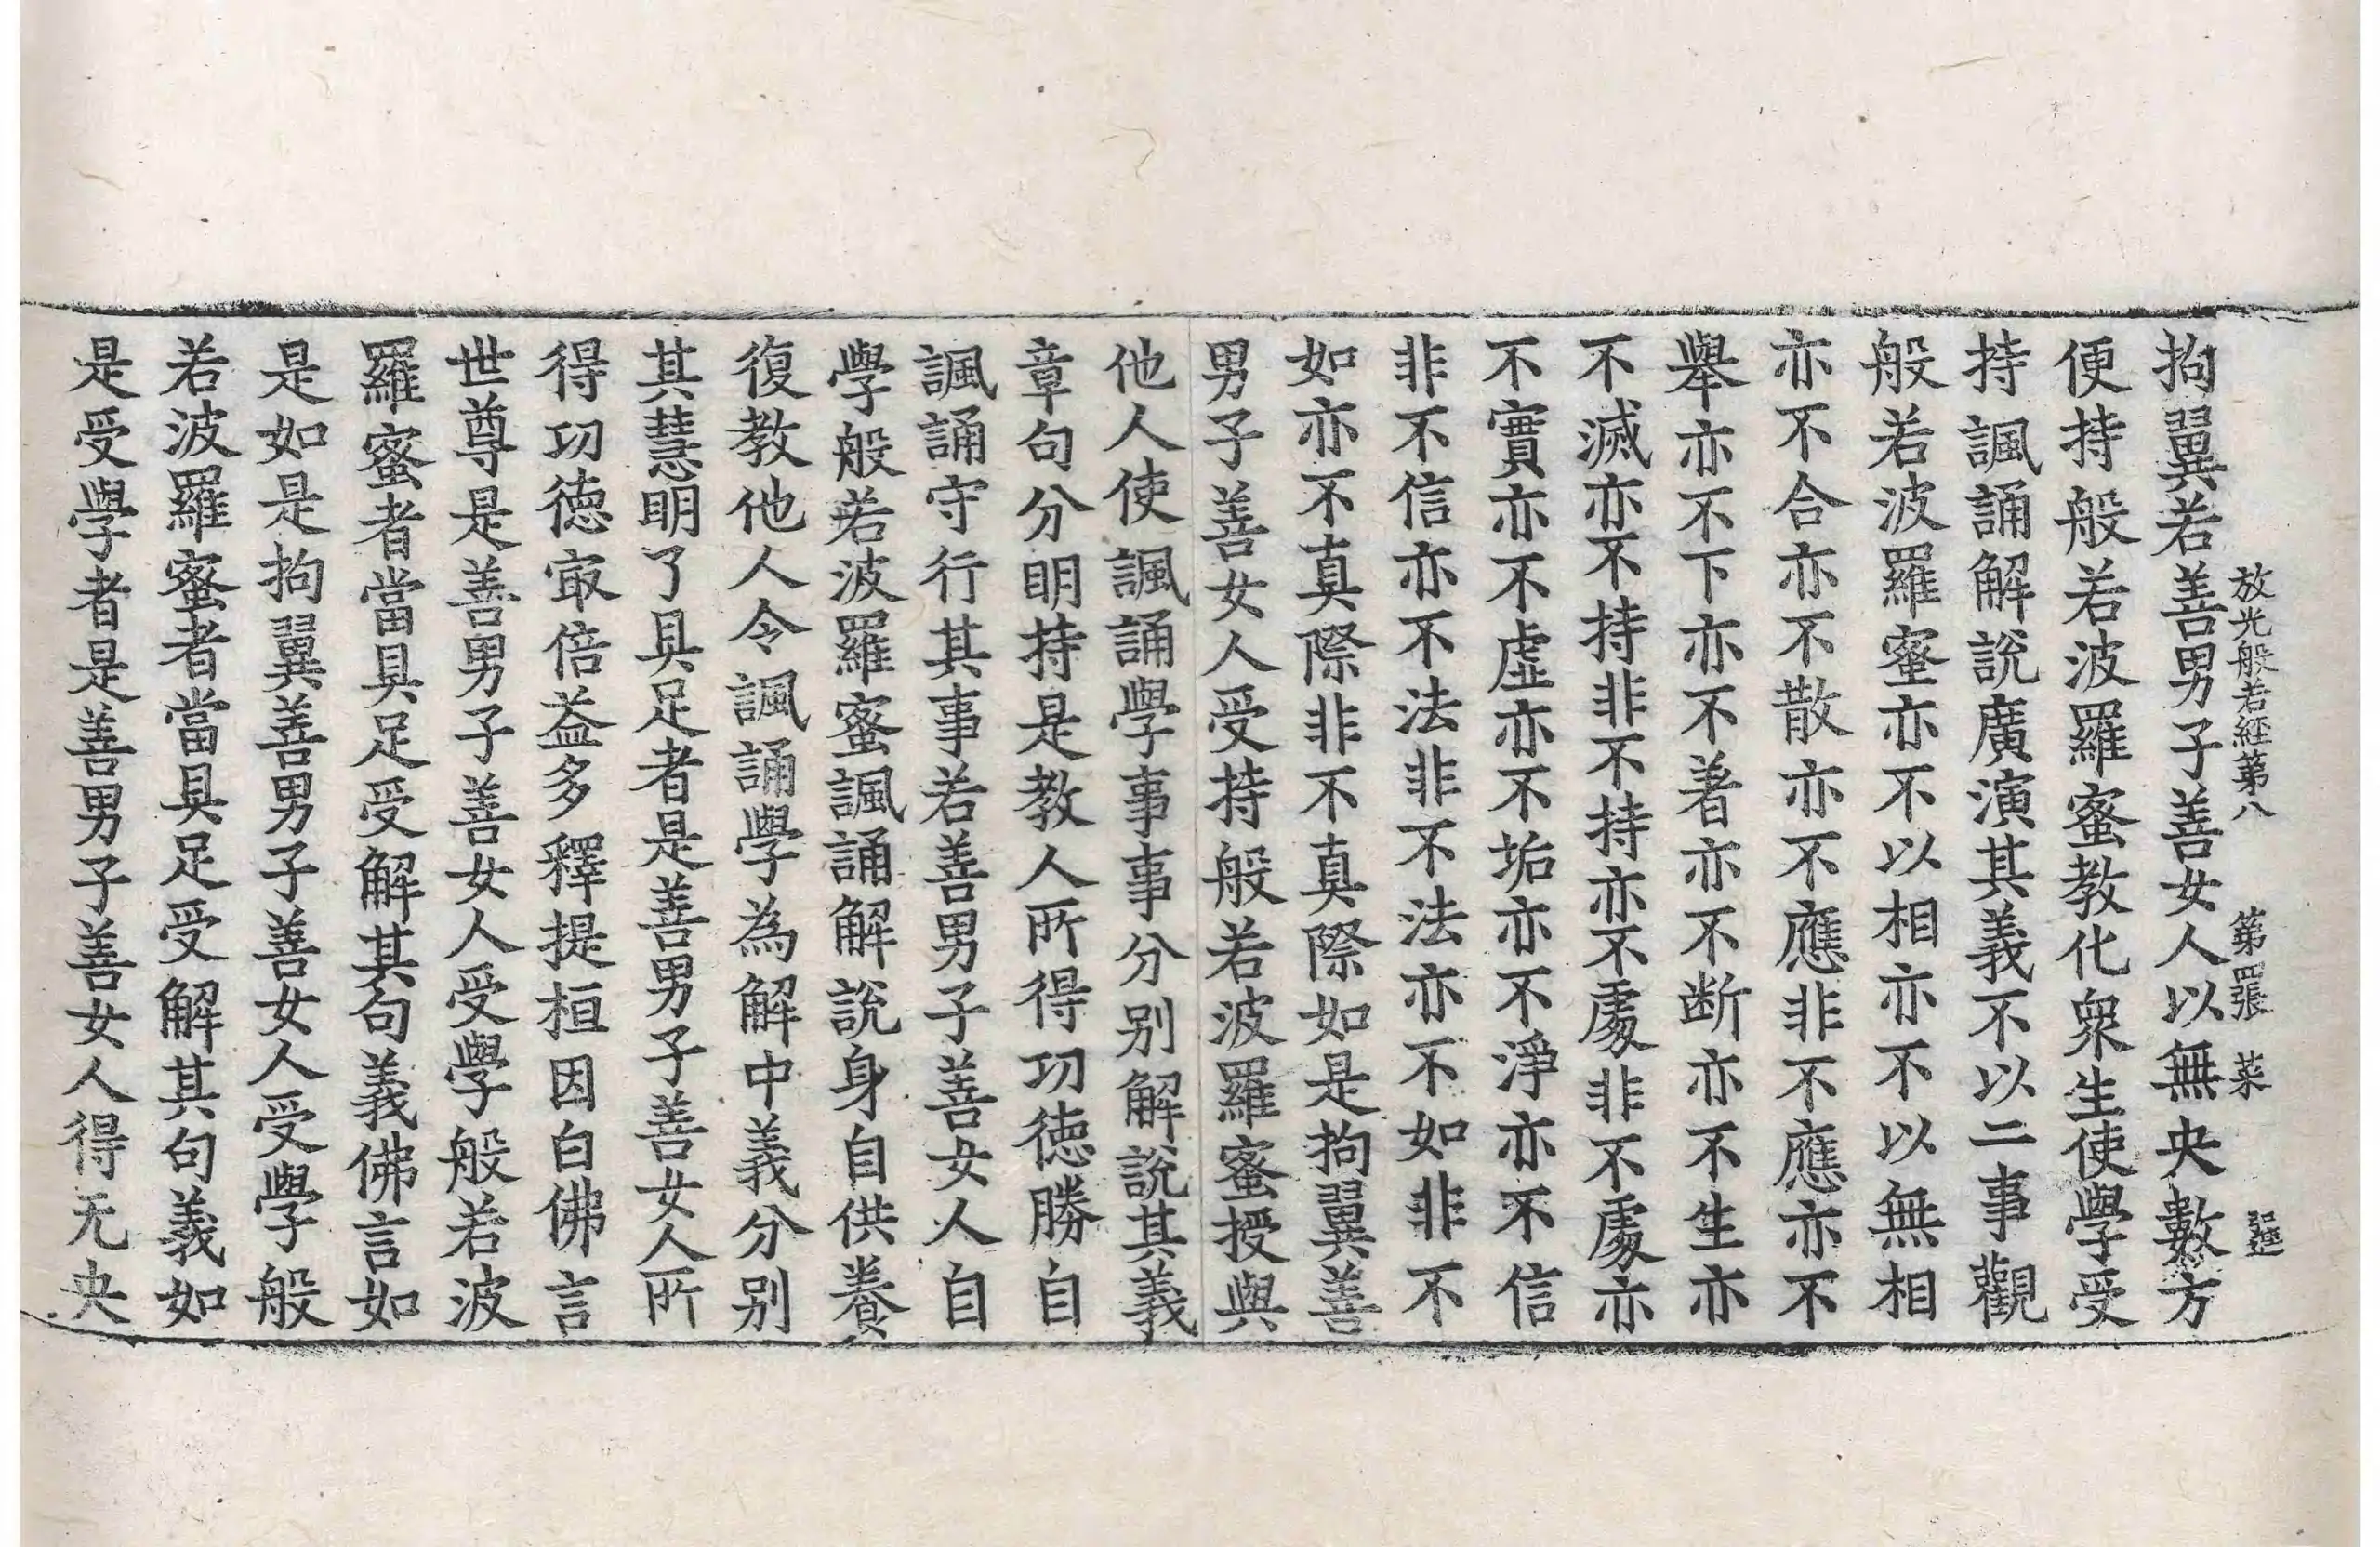 放光般若経第八 第四張 菜
拘翼若善男子善女人以無央數方
便持般若波羅蜜教化衆生使學受
持諷誦解說廣演其義不以二事觀
般若波羅蜜亦不以相亦不以無相
亦不合亦不散亦不應非不應亦不
舉亦不下亦不著亦不断亦不生亦
不滅亦不持非不持亦不處非不處亦
不實亦不虛亦不垢亦不淨亦不信
非不信亦不法非不法亦不如非不
如亦不真際非不真際如是拘翼善
男子善女人受持般若波羅蜜授與
他人使諷誦學事事分别解說其義
章句分明持是教人所得功德勝自
諷誦守行其事若善男子善女人自
學般若波羅蜜諷誦解說身自供養
復教他人令諷誦學為解中義分别
其慧明了具足者是善男子善女人所
得功德㝡倍益多釋提桓因白佛言
世尊是善男子善女人受學般若波
羅蜜者當具足受解其句義佛言如
是如是拘翼善男子善女人受學般
若波羅蜜者當具足受解其句義如
是受學者是善男子善女人得无央